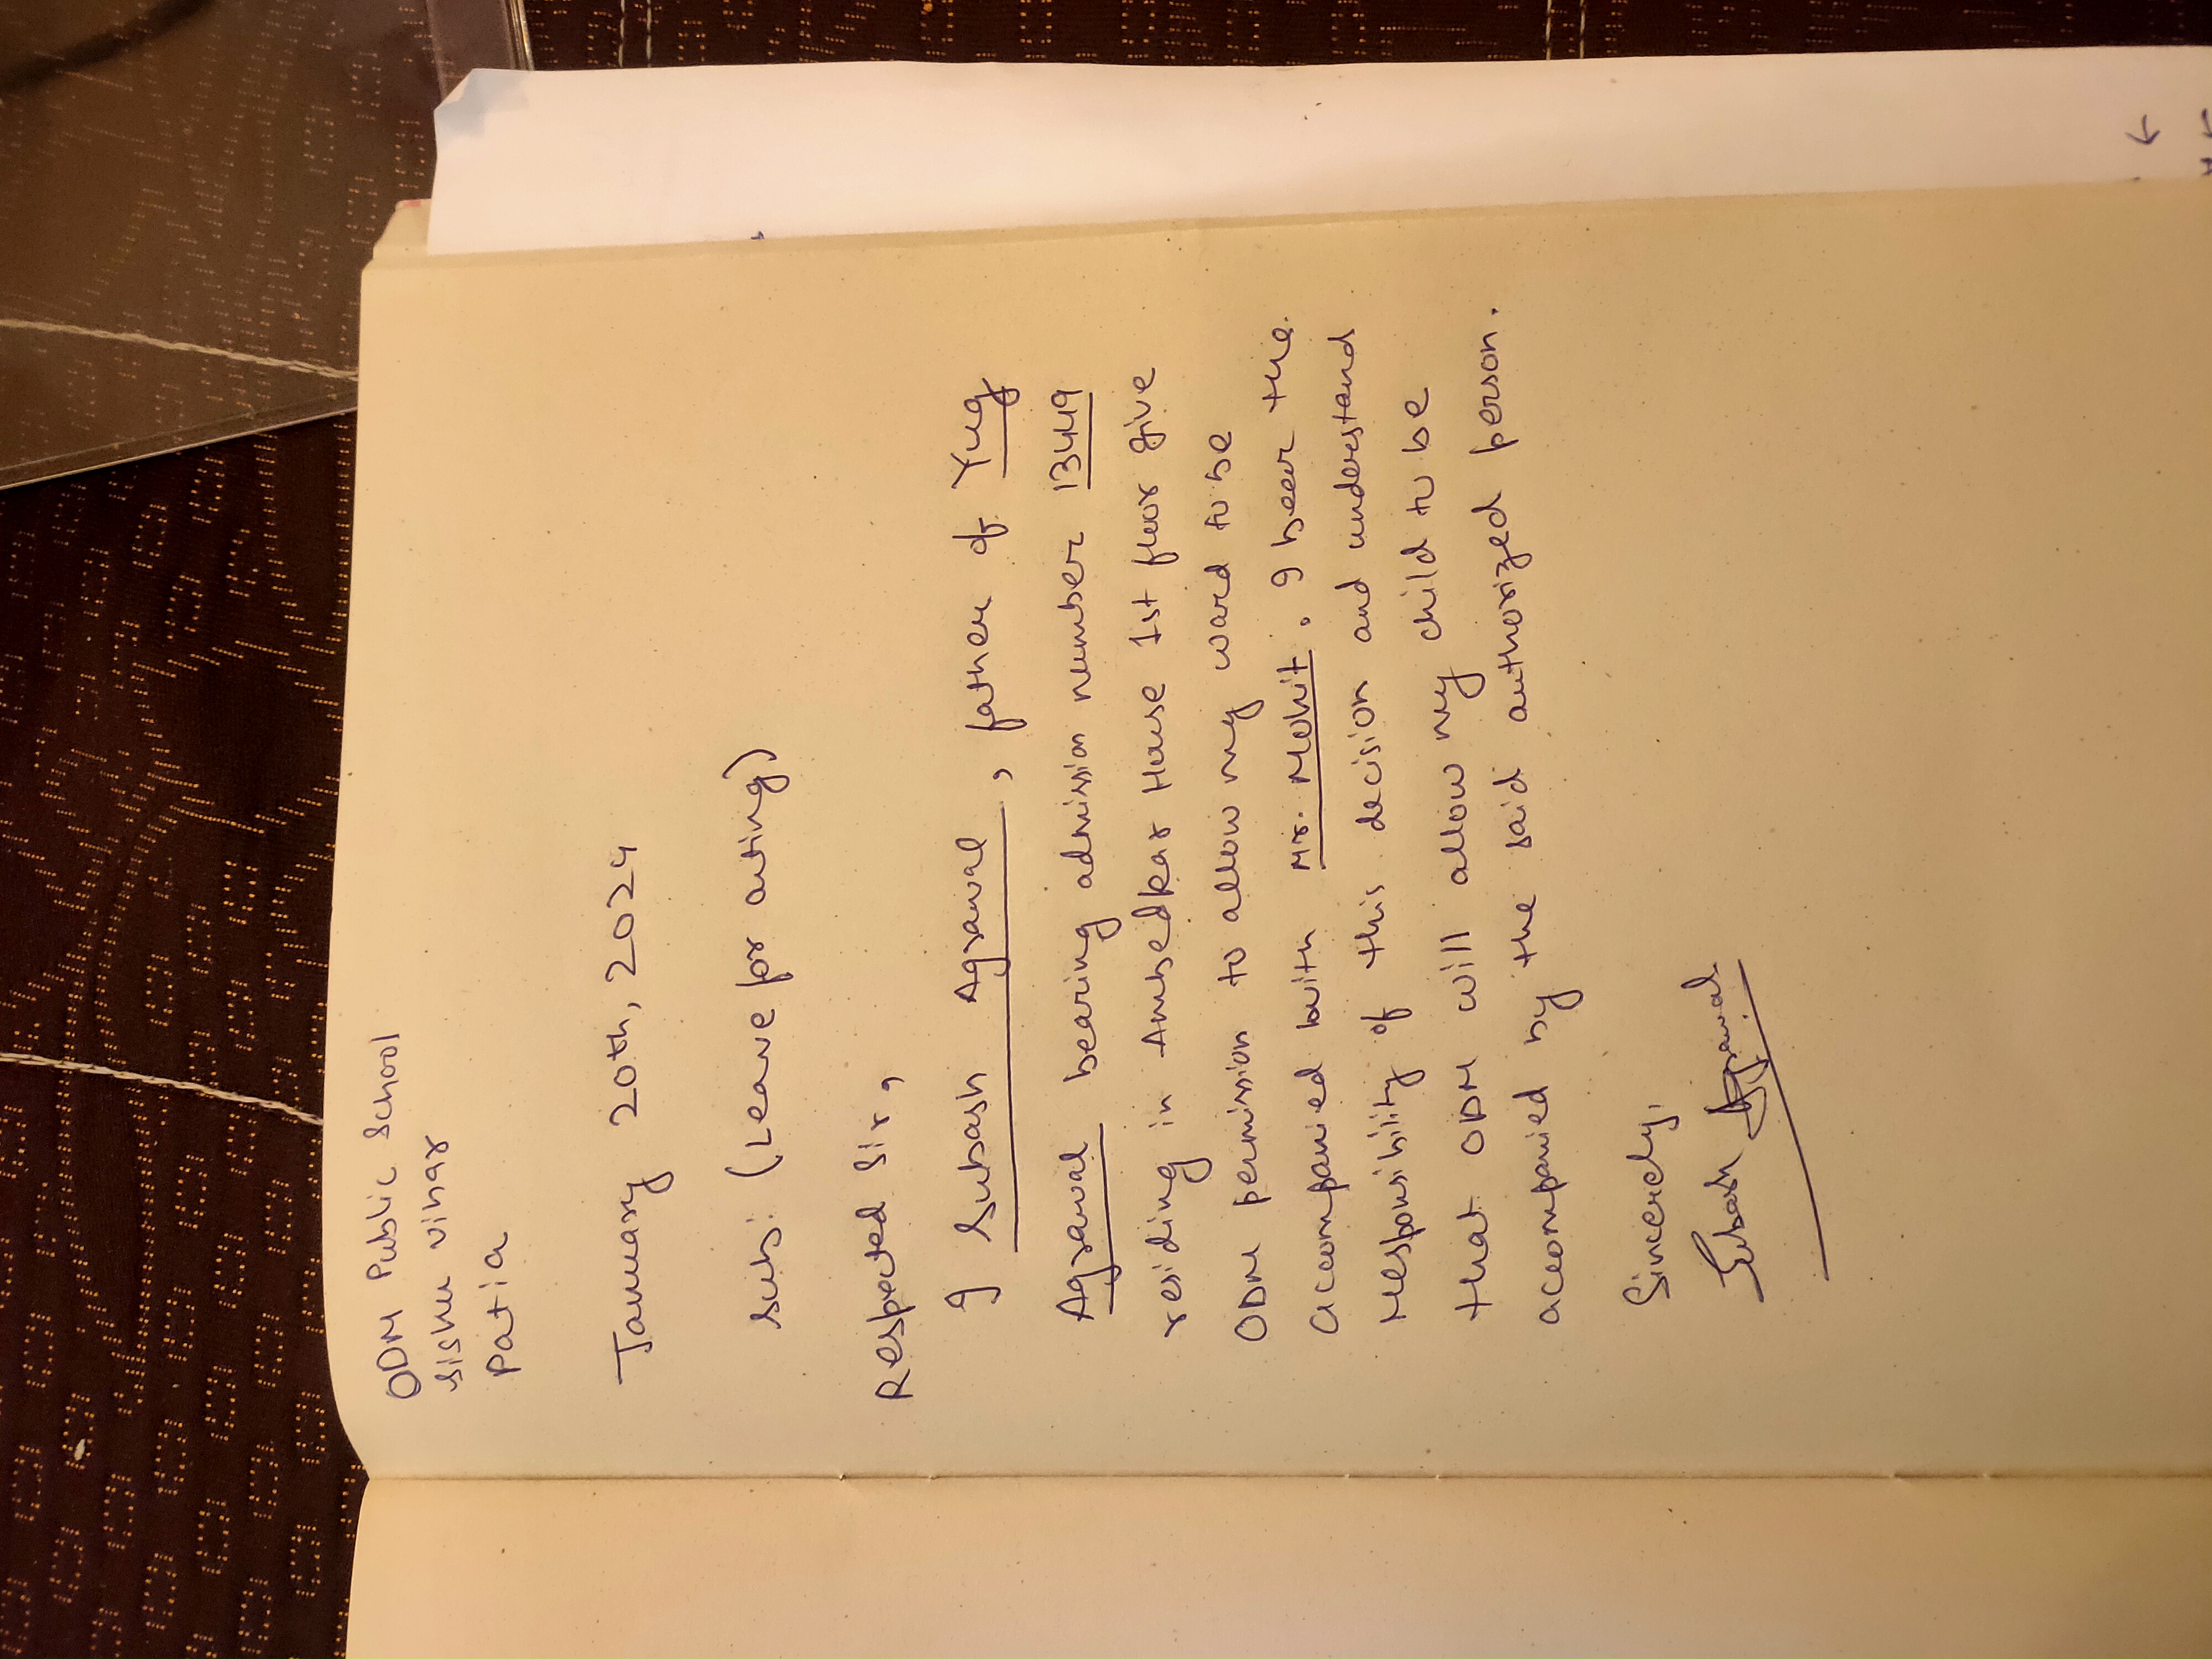 ODM Public School
Sishu vihar
Patia
January 20th, 2024
Sub: (Leave for outing)
Respected Sir,
I Subash Agrawal, father of Yug
Agrawal bearing admission number 13449
residing in Ambedkar House 1st floor give
ODM permission to allow my ward to be
accompanied with Mr. Mohit. I bear the
responsibility of this decision and understand
that ODM will allow my child to be
accompanied by the said authorized person.
Sincerely,
Subash Agrawal